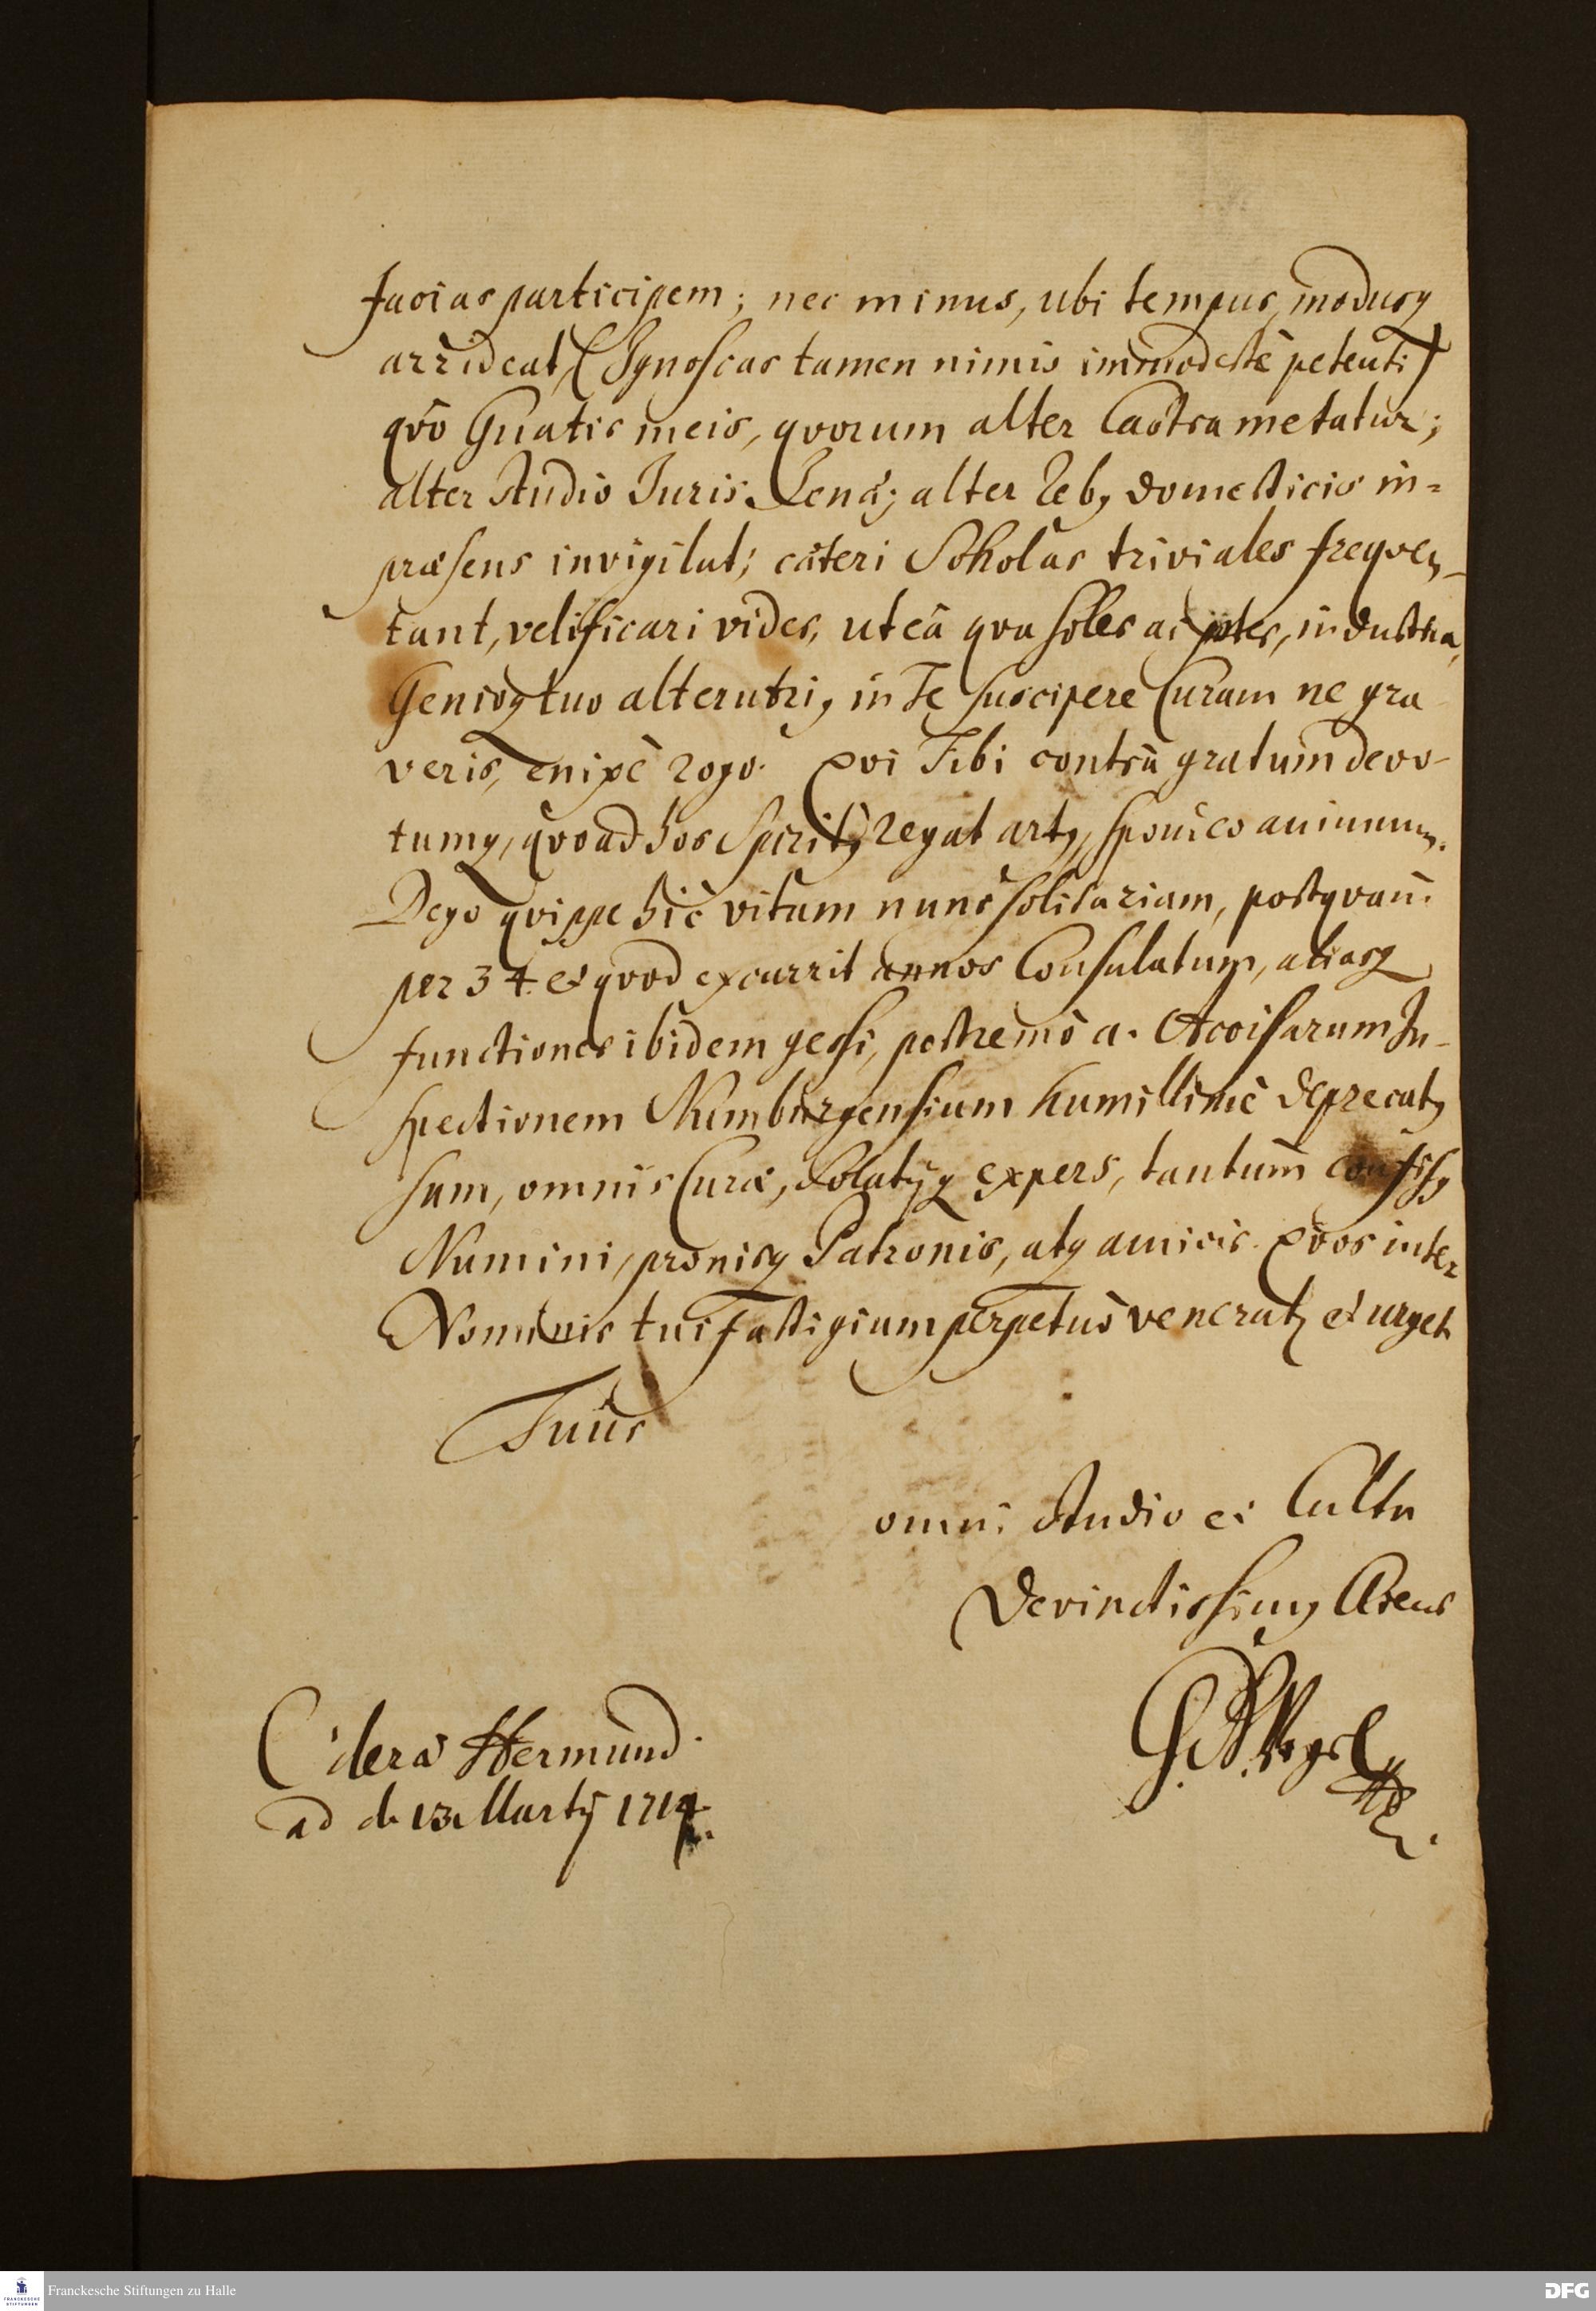 facias participem; nec minus, ubi tempus, modusq
arrideat, (Ignoscas tamen nimis immodestè petenti)
qvò Gnatis meis, qvorum alter Castra metatur;
alter Studio Juris Lenæ; alter Reb, domesticis in=
præsens invigilat; cæteri Scholas triviales freqven-
tant, velificari vides, ut eâ qva soles ac potes, industria,
Genioq tuo alterutri, in Te suscipere Curam ne gra
veris, enixè rogo. Qvi Tibi contrà gratum devo-
tumq, qvoad hos Spirit, regat art, spondeo animum.
Dego qvippe hìc vitam nunc solitariam, postqvam
per 34 et qvod excurrit annos Consulatum, aliasq
functiones ibidem gessi, postremò a. Accisarum In-
spectionem Numburgensium humillimè deprecat,
sum, omnis Curæ, Solatijq expers, tantum confis,
Numini, pronisq Patronis, atq amicis. Qvos inter
Nominis tui fastigium perpetuò venerat, et urget
Tuus
omni Studio et Cultu
Devinctissim, Cliens
Vogel
Hermund.
ad d. 13. Martij 1714.
Franckesche Stiftungen zu Halle
FRANCKESCHE STIFTUNGEN
DFG